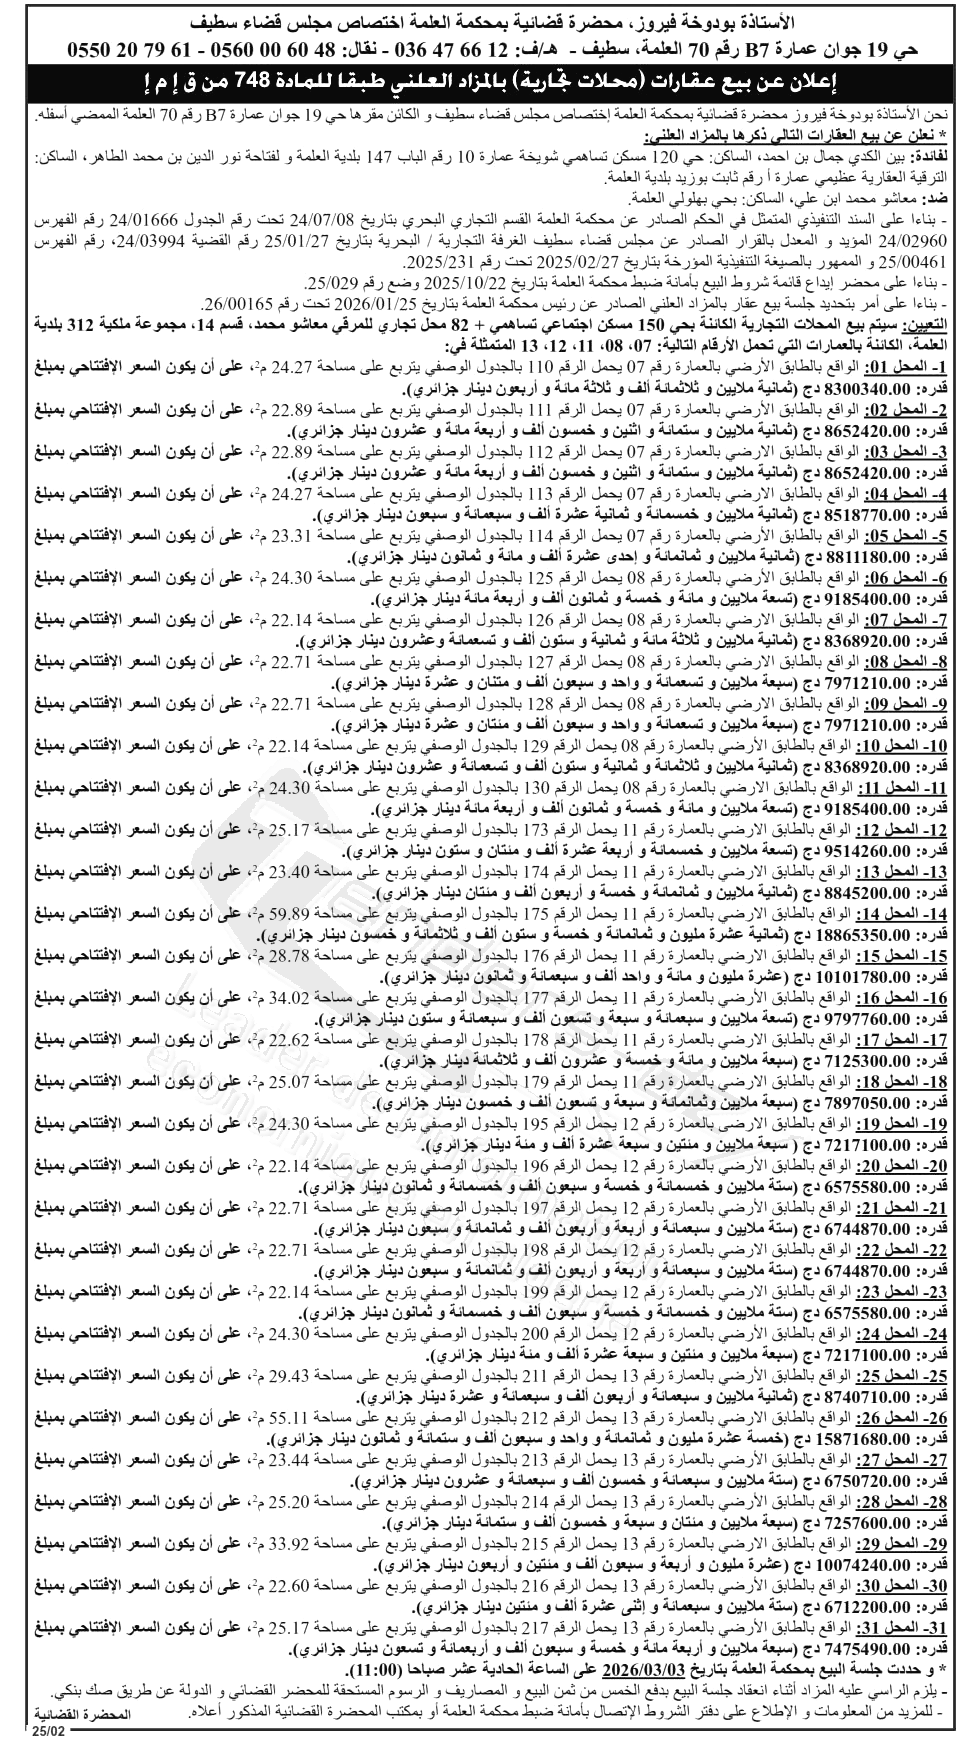 الأستاذة بودوخة فيروز، محضرة قضائية بمحكمة العلمة اختصاص مجلس قضاء سطيف
حي 19 جوان عمارة B7 رقم 70 العلمة، سطيف - هـ/ف: 12 66 47 036 - نقال: 48 60 00 0560 - 61 79 20 0550
إعلان عن بيع عقارات (محلات تجارية) بالمزاد العلني طبقا للمادة 748 من ق إ م إ
نحن الأستاذة بودوخة فيروز محضرة قضائية بمحكمة العلمة إختصاص مجلس قضاء سطيف و الكائن مقرها حي 19 جوان عمارة B7 رقم 70 العلمة الممضي أسفله.
* نعلن عن بيع العقارات التالي ذكرها بالمزاد العلني:
لفائدة: بين الكدي جمال بن احمد، الساكن: حي 120 مسكن تساهمي شويخة عمارة 10 رقم الباب 147 بلدية العلمة و لفتاحة نور الدين بن محمد الطاهر، الساكن:
الترقية العقارية عظيمي عمارة أ رقم ثابت بوزيد بلدية العلمة.
ضد: معاشو محمد ابن علي، الساكن: بحي بهلولي العلمة.
- بناءا على السند التنفيذي المتمثل في الحكم الصادر عن محكمة العلمة القسم التجاري البحري بتاريخ 24/07/08 تحت رقم الجدول 24/01666 رقم الفهرس
24/02960 المؤيد و المعدل بالقرار الصادر عن مجلس قضاء سطيف الغرفة التجارية / البحرية بتاريخ 25/01/27 رقم القضية 24/03994، رقم الفهرس
25/00461 و الممهور بالصيغة التنفيذية المؤرخة بتاريخ 2025/02/27 تحت رقم 2025/231.
- بناءا على محضر إيداع قائمة شروط البيع بأمانة ضبط محكمة العلمة بتاريخ 2025/10/22 وضع رقم 25/029.
- بناءا على أمر بتحديد جلسة بيع عقار بالمزاد العلني الصادر عن رئيس محكمة العلمة بتاريخ 2026/01/25 تحت رقم 26/00165.
التعيين: سيتم بيع المحلات التجارية الكائنة بحي 150 مسكن اجتماعي تساهمي + 82 محل تجاري للمرقي معاشو محمد، قسم 14، مجموعة ملكية 312 بلدية
العلمة، الكائنة بالعمارات التي تحمل الأرقام التالية: 07، 08، 11، 12، 13 المتمثلة في:
1- المحل 01: الواقع بالطابق الأرضي بالعمارة رقم 07 يحمل الرقم 110 بالجدول الوصفي يتربع على مساحة 24.27 م²، على أن يكون السعر الإفتتاحي بمبلغ
قدره: 8300340.00 دج (ثمانية ملايين و ثلاثمائة ألف و ثلاثة مائة و أربعون دينار جزائري).
2- المحل 02: الواقع بالطابق الأرضي بالعمارة رقم 07 يحمل الرقم 111 بالجدول الوصفي يتربع على مساحة 22.89 م²، على أن يكون السعر الإفتتاحي بمبلغ
قدره: 8652420.00 دج (ثمانية ملايين و ستمائة و اثنين و خمسون ألف و أربعة مائة و عشرون دينار جزائري).
3- المحل 03: الواقع بالطابق الأرضي بالعمارة رقم 07 يحمل الرقم 112 بالجدول الوصفي يتربع على مساحة 22.89 م²، على أن يكون السعر الإفتتاحي بمبلغ
قدره: 8652420.00 دج (ثمانية ملايين و ستمائة و اثنين و خمسون ألف و أربعة مائة و عشرون دينار جزائري).
4- المحل 04: الواقع بالطابق الارضي بالعمارة رقم 07 يحمل الرقم 113 بالجدول الوصفي يتربع على مساحة 24.27 م²، على أن يكون السعر الإفتتاحي بمبلغ
قدره: 8518770.00 دج (ثمانية ملايين و خمسمائة و ثمانية عشرة ألف و سبعمائة و سبعون دينار جزائري).
5- المحل 05: الواقع بالطابق الأرضي بالعمارة رقم 07 يحمل الرقم 114 بالجدول الوصفي يتربع على مساحة 23.31 م²، على أن يكون السعر الإفتتاحي بمبلغ
قدره: 8811180.00 دج (ثمانية ملايين و ثمانمائة و إحدى عشرة ألف و مائة و ثمانون دينار جزائري).
6- المحل 06: الواقع بالطابق الأرضي بالعمارة رقم 08 يحمل الرقم 125 بالجدول الوصفي يتربع على مساحة 24.30 م²، على أن يكون السعر الإفتتاحي بمبلغ
قدره: 9185400.00 دج (تسعة ملايين و مائة و خمسة و ثمانون ألف و أربعة مائة دينار جزائري).
7- المحل 07: الواقع بالطابق الأرضي بالعمارة رقم 08 يحمل الرقم 126 بالجدول الوصفي يتربع على مساحة 22.14 م²، على أن يكون السعر الإفتتاحي بمبلغ
قدره: 8368920.00 دج (ثمانية ملايين و ثلاثة مائة و ثمانية و ستون ألف و تسعمائة وعشرون دينار جزائري).
8- المحل 08: الواقع بالطابق الارضي بالعمارة رقم 08 يحمل الرقم 127 بالجدول الوصفي يتربع على مساحة 22.71 م²، على أن يكون السعر الإفتتاحي بمبلغ
قدره: 7971210.00 دج (سبعة ملايين و تسعمائة و واحد و سبعون ألف و متنان و عشرة دينار جزائري).
9- المحل 09: الواقع بالطابق الأرضي بالعمارة رقم 08 يحمل الرقم 128 بالجدول الوصفي يتربع على مساحة 22.71 م²، على أن يكون السعر الإفتتاحي بمبلغ
قدره: 7971210.00 دج (سبعة ملايين و تسعمائة و واحد و سبعون ألف و مئتان و عشرة دينار جزائري).
10- المحل 10: الواقع بالطابق الأرضي بالعمارة رقم 08 يحمل الرقم 129 بالجدول الوصفي يتربع على مساحة 22.14 م²، على أن يكون السعر الإفتتاحي بمبلغ
قدره: 8368920.00 دج (ثمانية ملايين و ثلاثمائة و ثمانية و ستون ألف و تسعمائة و عشرون دينار جزائري).
11- المحل 11: الواقع بالطابق الأرضي بالعمارة رقم 08 يحمل الرقم 130 بالجدول الوصفي يتربع على مساحة 24.30 م²، على أن يكون السعر الإفتتاحي بمبلغ
قدره: 9185400.00 دج (تسعة ملايين و مائة و خمسة و ثمانون ألف و أربعة مائة دينار جزائري).
12- المحل 12: الواقع بالطابق الارضي بالعمارة رقم 11 يحمل الرقم 173 بالجدول الوصفي يتربع على مساحة 25.17 م²، على أن يكون السعر الإفتتاحي بمبلغ
قدره: 9514260.00 دج (تسعة ملايين و خمسمائة و أربعة عشرة ألف و مئتان و ستون دينار جزائري).
13- المحل 13: الواقع بالطابق الارضي بالعمارة رقم 11 يحمل الرقم 174 بالجدول الوصفي يتربع على مساحة 23.40 م²، على أن يكون السعر الإفتتاحي بمبلغ
قدره: 8845200.00 دج (ثمانية ملايين و ثمانمائة و خمسة و أربعون ألف و مئتان دينار جزائري).
14- المحل 14: الواقع بالطابق الارضي بالعمارة رقم 11 يحمل الرقم 175 بالجدول الوصفي يتربع على مساحة 59.89 م²، على أن يكون السعر الإفتتاحي بمبلغ
قدره: 18865350.00 دج (ثمانية عشرة مليون و ثمانمائة و خمسة و ستون ألف و ثلاثمائة و خمسون دينار جزائري).
15- المحل 15: الواقع بالطابق الارضي بالعمارة رقم 11 يحمل الرقم 176 بالجدول الوصفي يتربع على مساحة 28.78 م²، على أن يكون السعر الإفتتاحي بمبلغ
قدره: 10101780.00 دج (عشرة مليون و مائة و واحد ألف و سبعمائة و ثمانون دينار جزائري).
16- المحل 16: الواقع بالطابق الارضي بالعمارة رقم 11 يحمل الرقم 177 بالجدول الوصفي يتربع على مساحة 34.02 م²، على أن يكون السعر الإفتتاحي بمبلغ
قدره: 9797760.00 دج (تسعة ملايين و سبعمائة و سبعة و تسعون ألف و سبعمائة و ستون دينار جزائري).
17- المحل 17: الواقع بالطابق الارضي بالعمارة رقم 11 يحمل الرقم 178 بالجدول الوصفي يتربع على مساحة 22.62 م²، على أن يكون السعر الإفتتاحي بمبلغ
قدره: 7125300.00 دج (سبعة ملايين و مائة و خمسة و عشرون ألف و ثلاثمائة دينار جزائري).
18- المحل 18: الواقع بالطابق الارضي بالعمارة رقم 11 يحمل الرقم 179 بالجدول الوصفي يتربع على مساحة 25.07 م²، على أن يكون السعر الإفتتاحي بمبلغ
قدره: 7897050.00 دج (سبعة ملايين وثمانمائة و سبعة و تسعون ألف و خمسون دينار جزائري).
19- المحل 19: الواقع بالطابق الارضي بالعمارة رقم 12 يحمل الرقم 195 بالجدول الوصفي يتربع على مساحة 24.30 م²، على أن يكون السعر الإفتتاحي بمبلغ
قدره: 7217100.00 دج ( سبعة ملايين و مئتين و سبعة عشرة ألف و مئة دينار جزائري).
20- المحل 20: الواقع بالطابق الارضي بالعمارة رقم 12 يحمل الرقم 196 بالجدول الوصفي يتربع على مساحة 22.14 م²، على أن يكون السعر الإفتتاحي بمبلغ
قدره: 6575580.00 دج (ستة ملايين و خمسمائة و خمسة و سبعون ألف و خمسمائة و ثمانون دينار جزائري).
21- المحل 21: الواقع بالطابق الارضي بالعمارة رقم 12 يحمل الرقم 197 بالجدول الوصفي يتربع على مساحة 22.71 م²، على أن يكون السعر الإفتتاحي بمبلغ
قدره: 6744870.00 دج (ستة ملايين و سبعمائة و أربعة و أربعون ألف و ثمانمائة و سبعون دينار جزائري).
22- المحل 22: الواقع بالطابق الارضي بالعمارة رقم 12 يحمل الرقم 198 بالجدول الوصفي يتربع على مساحة 22.71 م²، على أن يكون السعر الإفتتاحي بمبلغ
قدره: 6744870.00 دج (ستة ملايين و سبعمائة و أربعة و أربعون ألف و ثمانمائة و سبعون دينار جزائري).
23- المحل 23: الواقع بالطابق الارضي بالعمارة رقم 12 يحمل الرقم 199 بالجدول الوصفي يتربع على مساحة 22.14 م²، على أن يكون السعر الإفتتاحي بمبلغ
قدره: 6575580.00 دج (ستة ملايين و خمسمائة و خمسة و سبعون ألف و خمسمائة و ثمانون دينار جزائري).
24- المحل 24: الواقع بالطابق الارضي بالعمارة رقم 12 يحمل الرقم 200 بالجدول الوصفي يتربع على مساحة 24.30 م²، على أن يكون السعر الإفتتاحي بمبلغ
قدره: 7217100.00 دج (سبعة ملايين و مئتين و سبعة عشرة ألف و مئة دينار جزائري).
25- المحل 25: الواقع بالطابق الارضي بالعمارة رقم 13 يحمل الرقم 211 بالجدول الوصفي يتربع على مساحة 29.43 م²، على أن يكون السعر الإفتتاحي بمبلغ
قدره: 8740710.00 دج (ثمانية ملايين و سبعمائة و أربعون ألف و سبعمائة و عشرة دينار جزائري).
26- المحل 26: الواقع بالطابق الارضي بالعمارة رقم 13 يحمل الرقم 212 بالجدول الوصفي يتربع على مساحة 55.11 م²، على أن يكون السعر الإفتتاحي بمبلغ
قدره: 15871680.00 دج (خمسة عشرة مليون و ثمانمائة و واحد و سبعون ألف و ستمائة و ثمانون دينار جزائري).
27- المحل 27: الواقع بالطابق الارضي بالعمارة رقم 13 يحمل الرقم 213 بالجدول الوصفي يتربع على مساحة 23.44 م²، على أن يكون السعر الإفتتاحي بمبلغ
قدره: 6750720.00 دج (ستة ملايين و سبعمائة و خمسون ألف و سبعمائة و عشرون دينار جزائري).
28- المحل 28: الواقع بالطابق الأرضي بالعمارة رقم 13 يحمل الرقم 214 بالجدول الوصفي يتربع على مساحة 25.20 م²، على أن يكون السعر الإفتتاحي بمبلغ
قدره: 7257600.00 دج (سبعة ملايين و مئتان و سبعة و خمسون ألف و ستمائة دينار جزائري).
29- المحل 29: الواقع بالطابق الأرضي بالعمارة رقم 13 يحمل الرقم 215 بالجدول الوصفي يتربع على مساحة 33.92 م²، على أن يكون السعر الإفتتاحي بمبلغ
قدره: 10074240.00 دج (عشرة مليون و أربعة و سبعون ألف و مئتين و أربعون دينار جزائري).
30- المحل 30: الواقع بالطابق الأرضي بالعمارة رقم 13 يحمل الرقم 216 بالجدول الوصفي يتربع على مساحة 22.60 م²، على أن يكون السعر الإفتتاحي بمبلغ
قدره: 6712200.00 دج (ستة ملايين و سبعمائة و إثنى عشرة ألف و مئتين دينار جزائري).
31- المحل 31: الواقع بالطابق الأرضي بالعمارة رقم 13 يحمل الرقم 217 بالجدول الوصفي يتربع على مساحة 25.17 م²، على أن يكون السعر الإفتتاحي بمبلغ
قدره: 7475490.00 دج (سبعة ملايين و أربعة مائة و خمسة و سبعون ألف و أربعمائة و تسعون دينار جزائري).
* و حددت جلسة البيع بمحكمة العلمة بتاريخ 2026/03/03 على الساعة الحادية عشر صباحا (11:00).
- يلزم الراسي عليه المزاد أثناء انعقاد جلسة البيع بدفع الخمس من ثمن البيع و المصاريف و الرسوم المستحقة للمحضر القضائي و الدولة عن طريق صك بنكي.
- للمزيد من المعلومات و الإطلاع على دفتر الشروط الإتصال بأمانة ضبط محكمة العلمة أو بمكتب المحضرة القضائية المذكور أعلاه. المحضرة القضائية
25/02